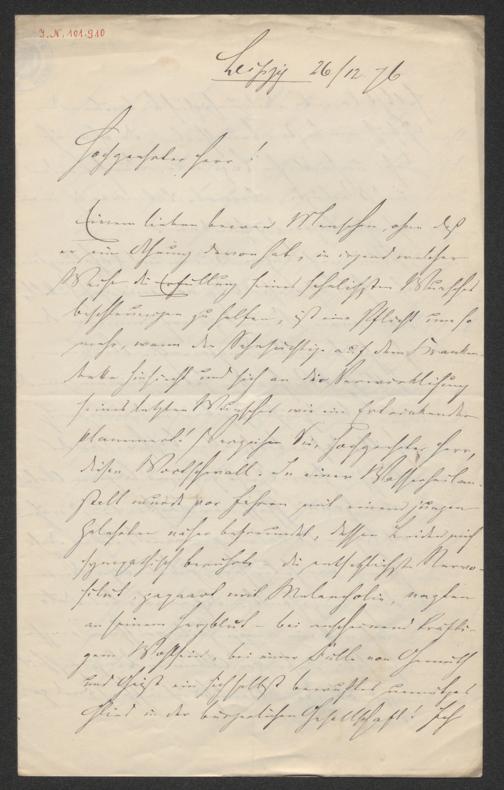 J. N. 101.910
Leipzig 26/12 76
Hochgeehrter Herr!
Einem lieben braven Menschen, ohne daß
er eine Ahnung davon hat, in irgend welcher
Weise die Erfüllung seines sehnlichsten Wunsches
beschleunigen zu helfen, ist eine Pflicht um so
mehr, wenn der Sehnsüchtige auf dem Kranken-
bette hinsiecht und sich an die Verwirklichung
seines letzten Wunsches wie ein Ertrinkender
klammert! Verzeihen Sie, hochgeehrter Herr,
diesen Wortschwall. In einer Wasserheilan-
stalt wurde vor Jahren mit einem jungen
Gelehrten näher befreundet, dessen Leiden mich
sympathisch berührte – die entsetzlichste Nervo-
sität, gepaart mit Melancholie, nagten
an seinem Herzblut – bei anscheinend kräfti-
gem Wohlsein, bei einer Fülle von Gemüth
und Geist ein sich selbst bewußtes unnützes
Glied in der bürgerlichen Gesellschaft! Ich